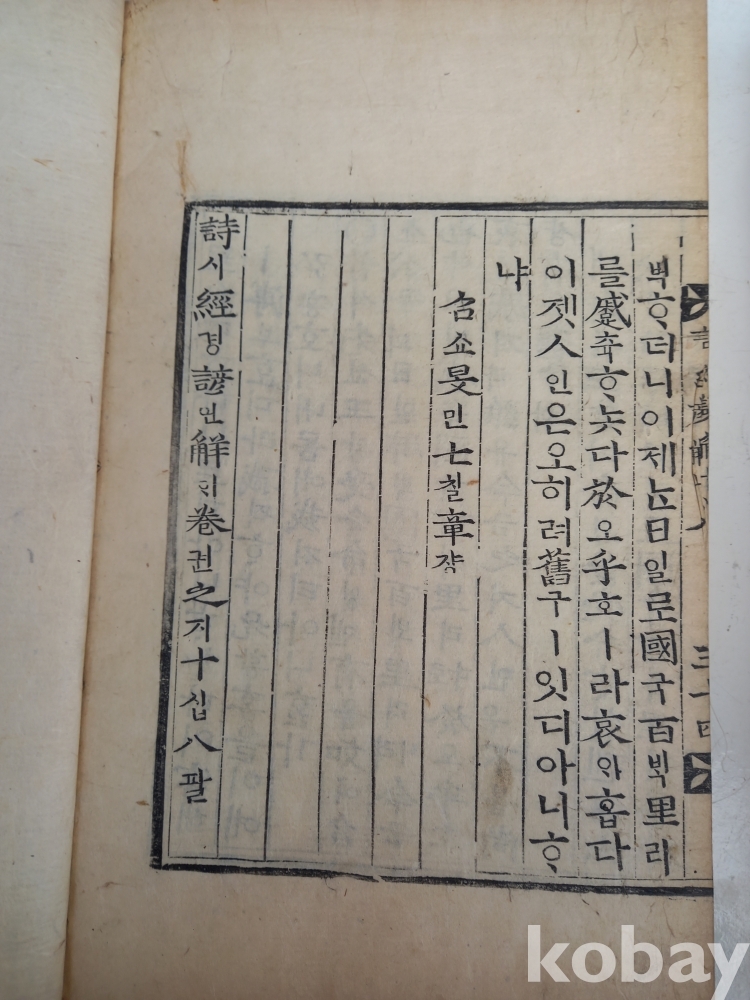 詩經諺解十八 三十四
벽ᄒᆞ더니이제ᄂᆞᆫ日일로國국百ᄇᆡᆨ里리
를蹙츅ᄒᆞ놋다於오乎호ㅣ라哀ᄋᆡ홉다
이젯人인은오히려舊구ㅣ잇디아니ᄒᆞ
냐
召쇼旻민七칠章쟝
詩시經경諺언解ᄒᆡ卷권之지十십八팔
kobay